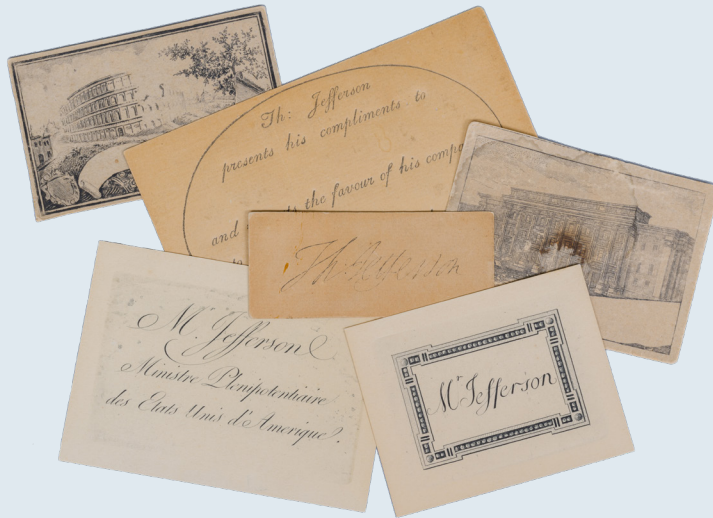 Th: Jefferson
presents his compliments to
and the favour of his
Th: Jefferson
Mr. Jefferson
Ministre Plenipotentiaire
des Etats Unis d'Amerique.
Mr. Jefferson